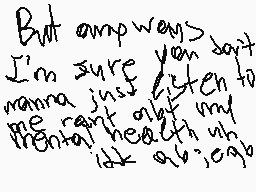 But anyways
I'm sure you don't
wanna just listen to
me rant abt my
mental health uh
idk